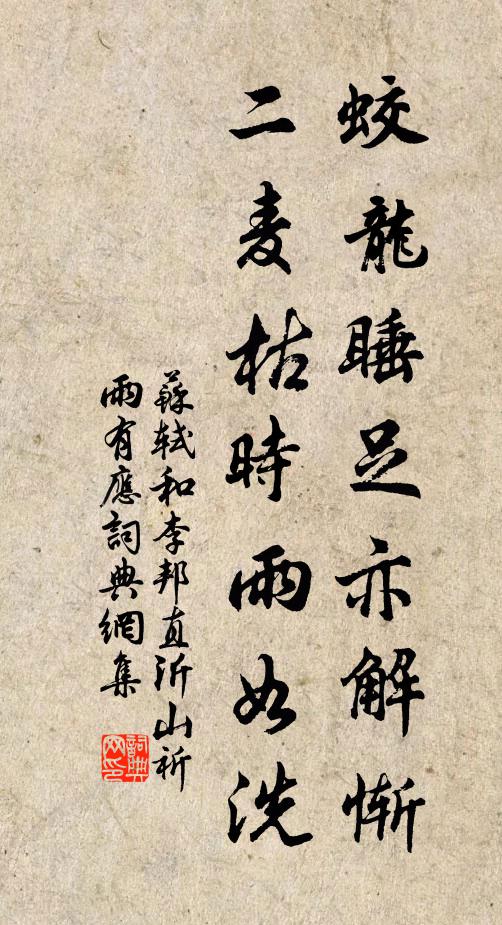 蛟龍睡足亦解慚
二麦枯時雨如洗
蘇軾和李邦直沂山祈
雨有應詞典網集
詞典网印